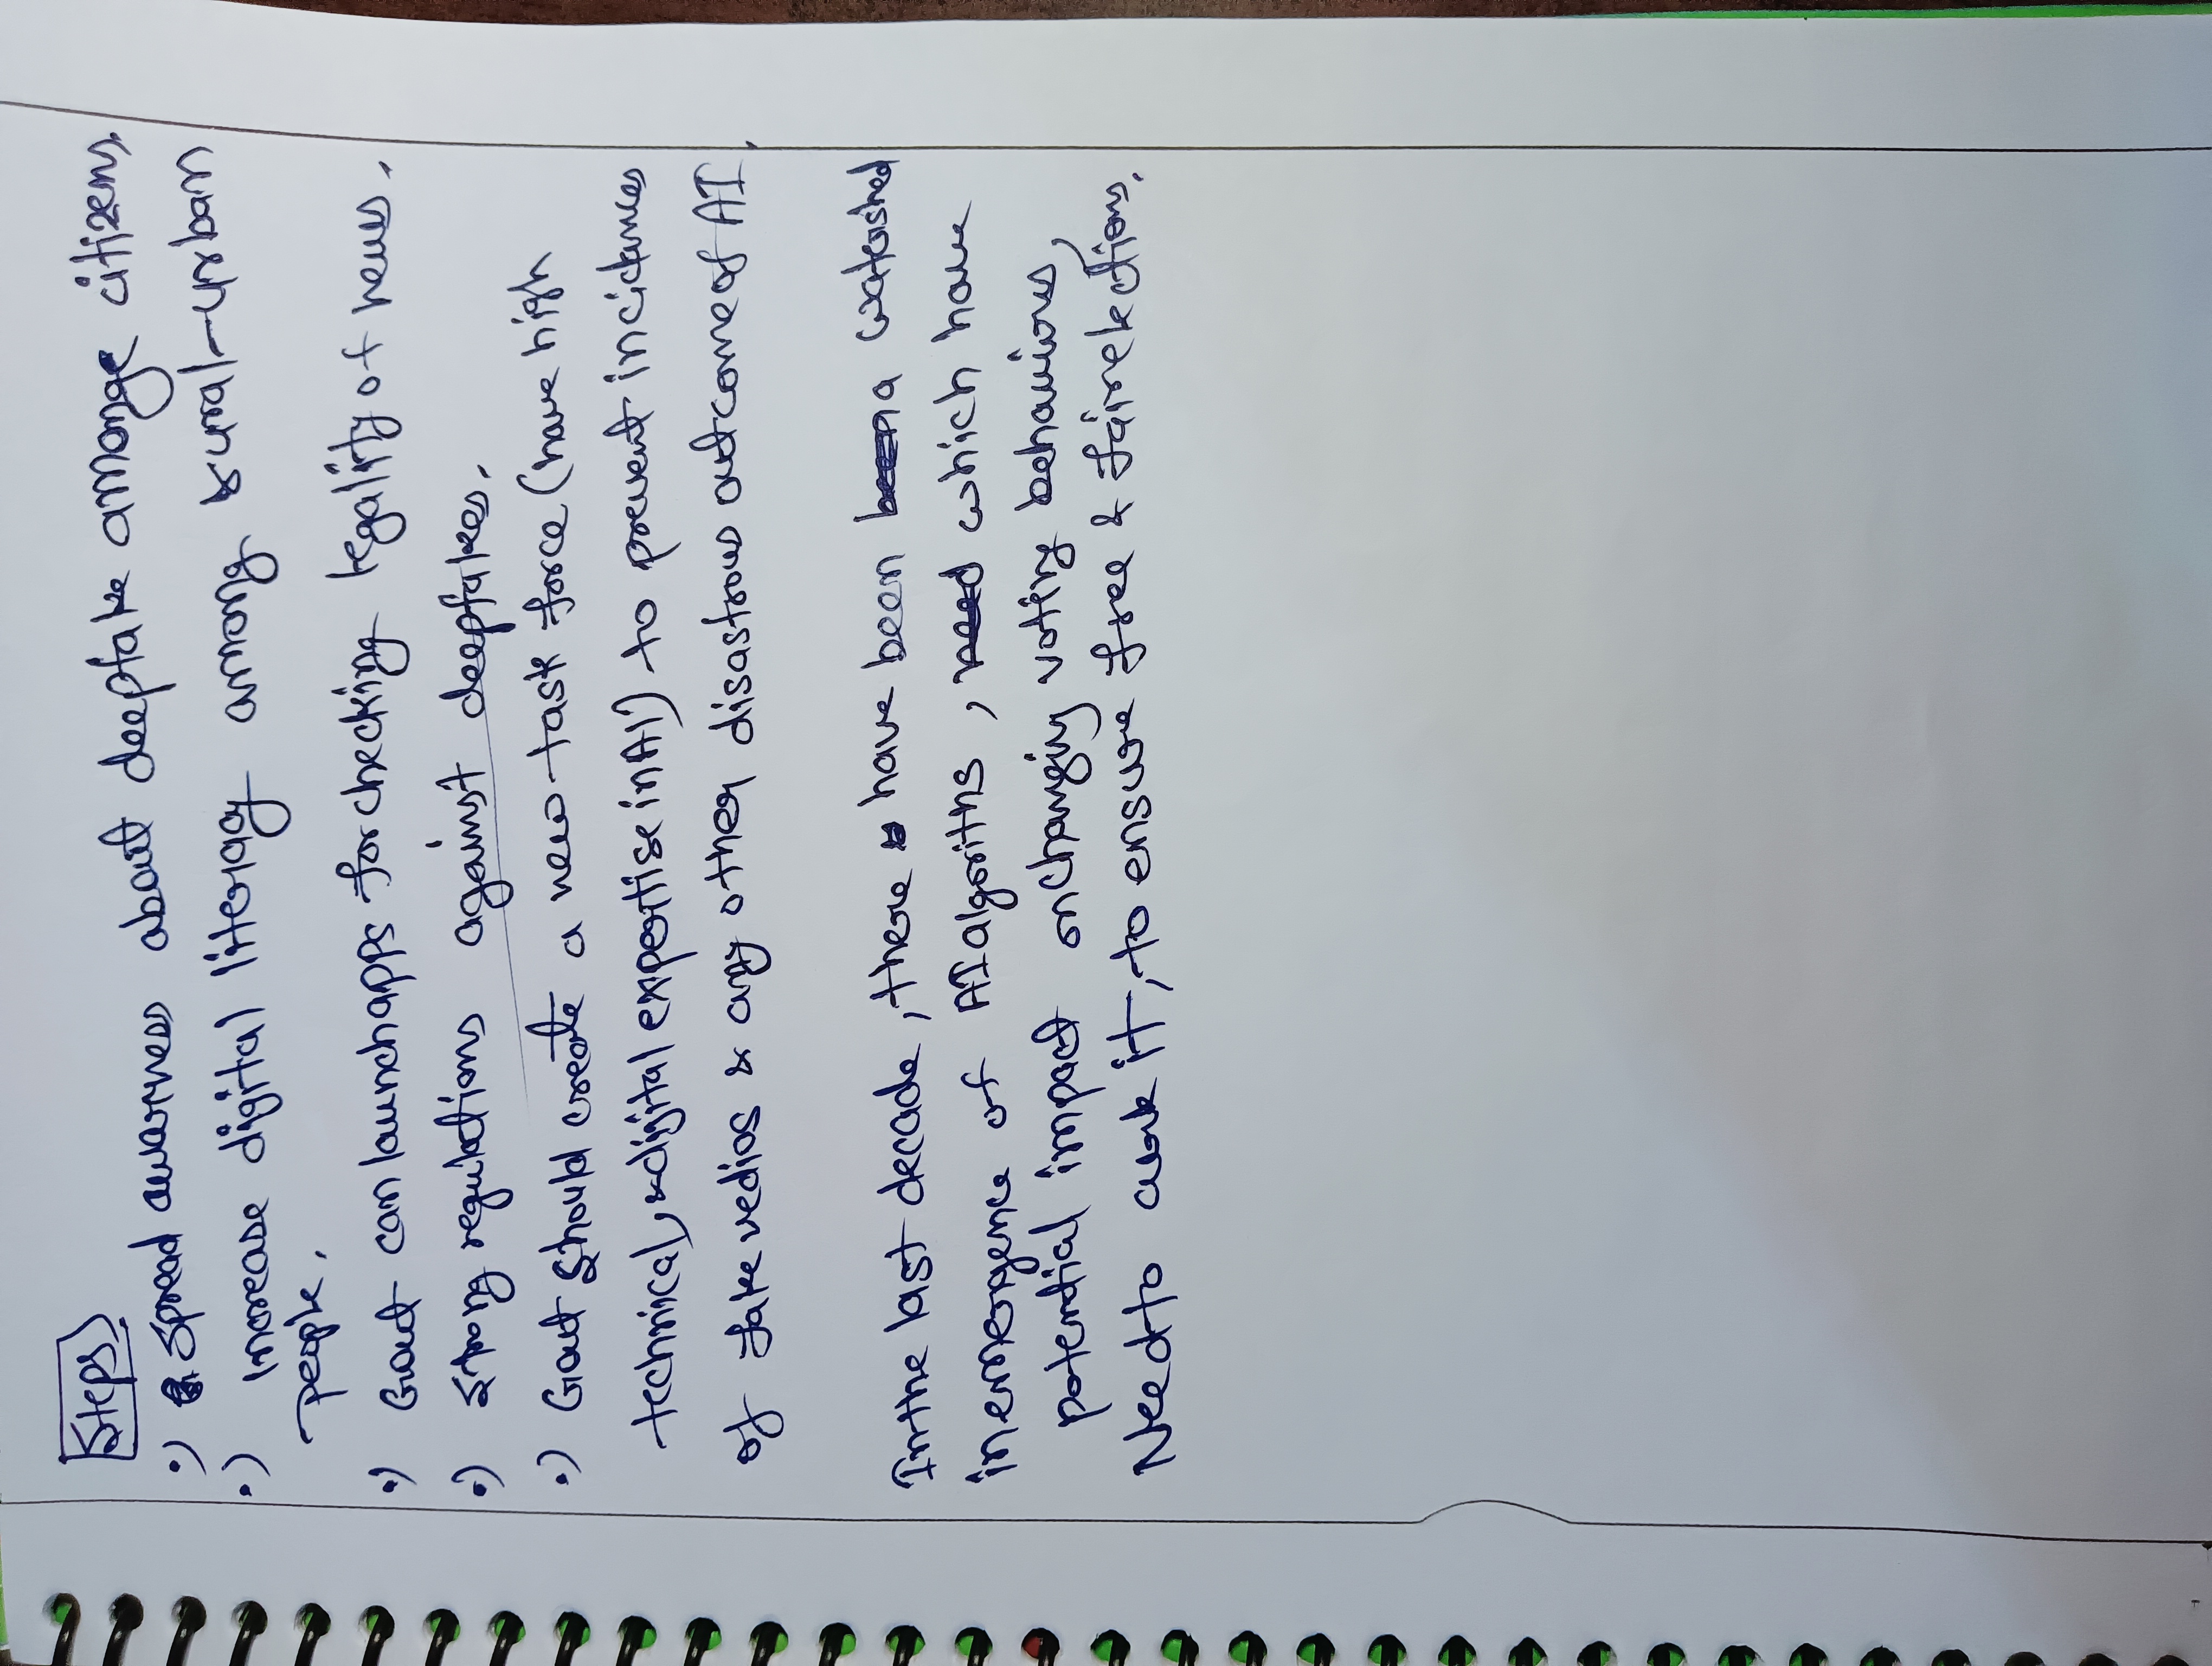 Steps
•) Spread awarness about deepfake amonge citizens.
•) Increase digital literacy among rural-urban
people.
•) Govt can launch apps for checking legality of news.
•) Strong regulations against deepfakes.
•) Govt should create a new task force (have high
technical, & digital expertise in AI) to prevent incidances
of fake vedios & any other disastrous outcome of AI.
In the last decade, there have been a watershed
in emergence of AI algoriths, which have
potential impact on changing voting behaviour,
Need to work it, to ensure free & fair elections.